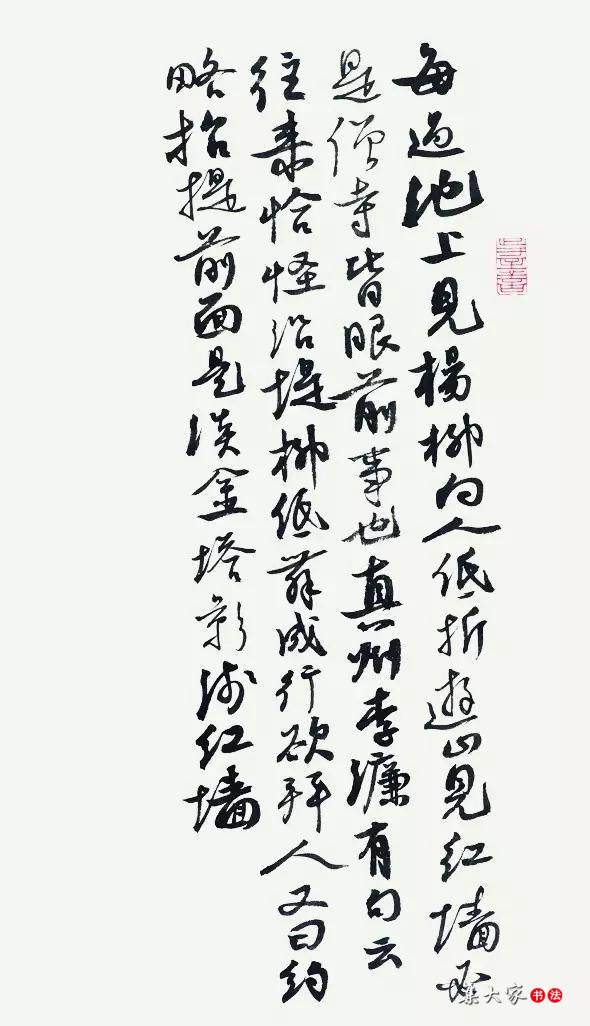 每過池上見楊柳向人低折遊山見紅墻必
是僧寺皆眼前事也真州李濂有句云
往来恰怪沿堤柳低舞成行欲拜人又曰約
略招提前面是淡金塔影淺紅墻
集大家书法